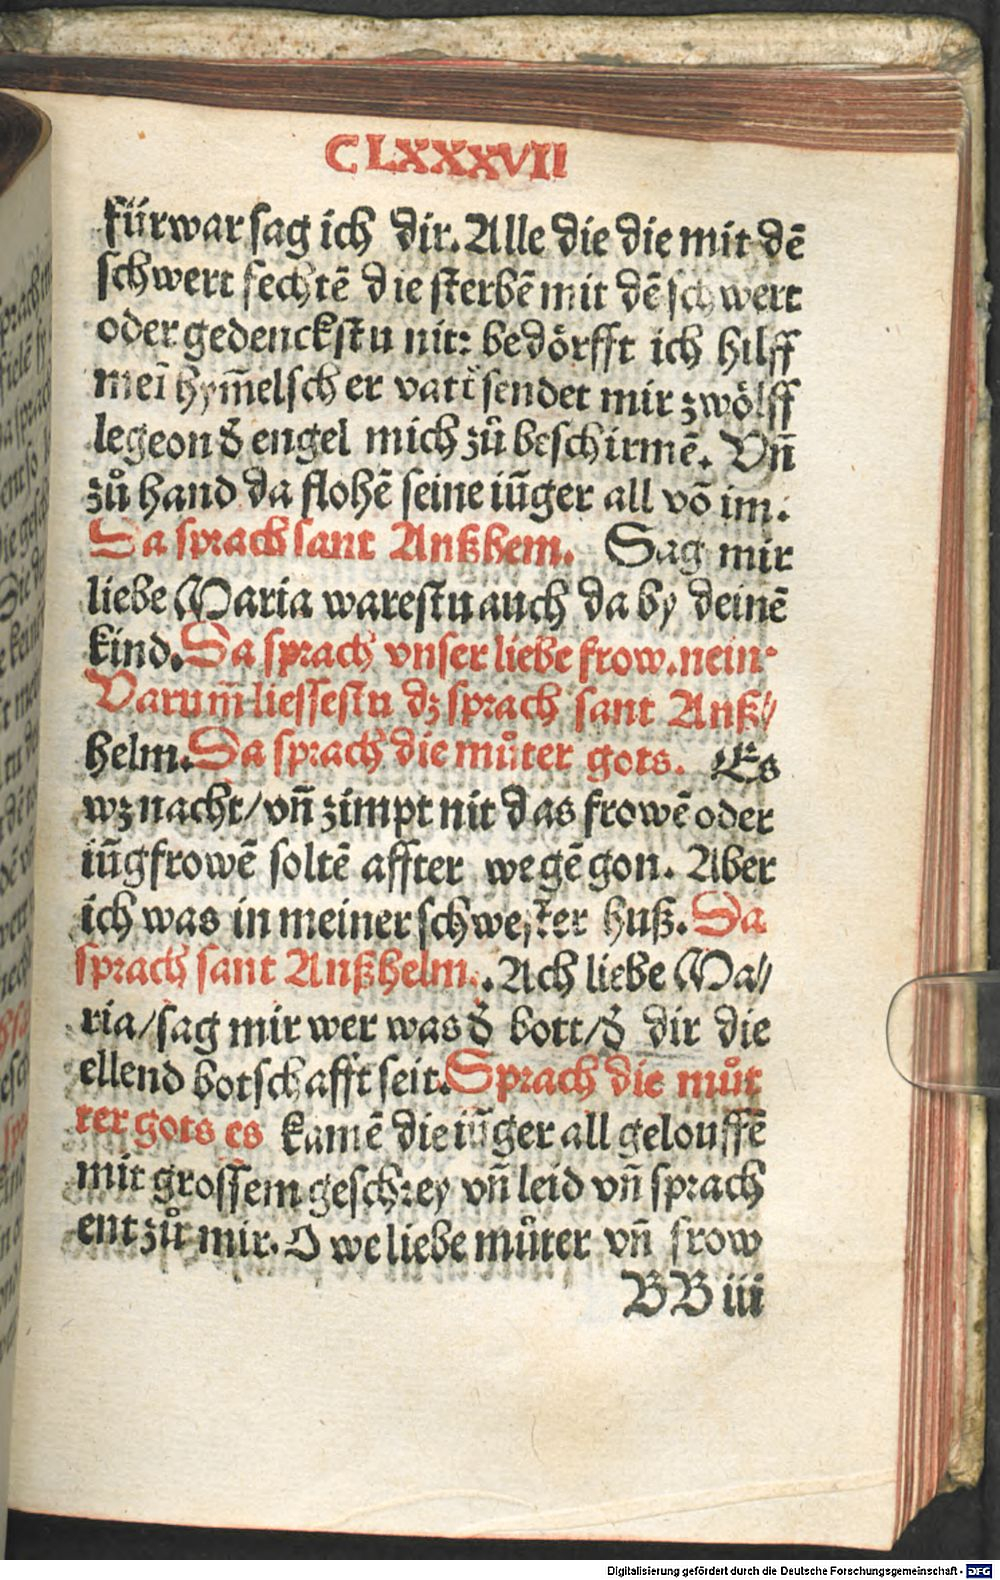 CLXXXVII
fürwar sag ich dir. Alle die die mit dē
schwert fechtē die sterbē mit dē schwert
oder gedenckstu nit: bedörfft ich hilff
mei hym̄elscher vatt sendet mir zwölff
legeon đ engel mich zů beschirmē. Vn̄
zů hand da flohē seine iūger all vō im.
Da sprach sant Anßhem. Sag mir
liebe Maria warestu auch da by deinē
kind. Da sprach vnser liebe frow. nein
Varum̄ liessestu dz sprach sant Anß//
helm. Da sprach die můter gots. Es
wz nacht/ vn̄ zimpt nit das frowē oder
iūgfrowē soltē affter wegē gon. Aber
ich was in meiner schwester huß. Da
sprach sant Anßhelm. Ach liebe Ma//
ria/ sag mir wer was đ bott/ đ dir die
ellend botschafft seit. Sprach die můt
ter gots es kamē die iūger all gelouffē
mit grossem geschrey vn̄ leid vn̄ sprach
ent zů mir. O we liebe můter vn̄ frow
BB iii
Digitalisierung gefördert durch die Deutsche Forschungsgemeinschaft - DFG